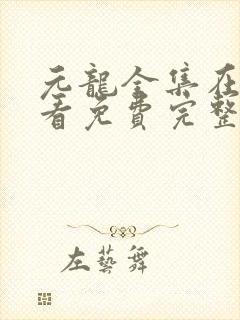 元龍全集在
看免費完整
左藝舞